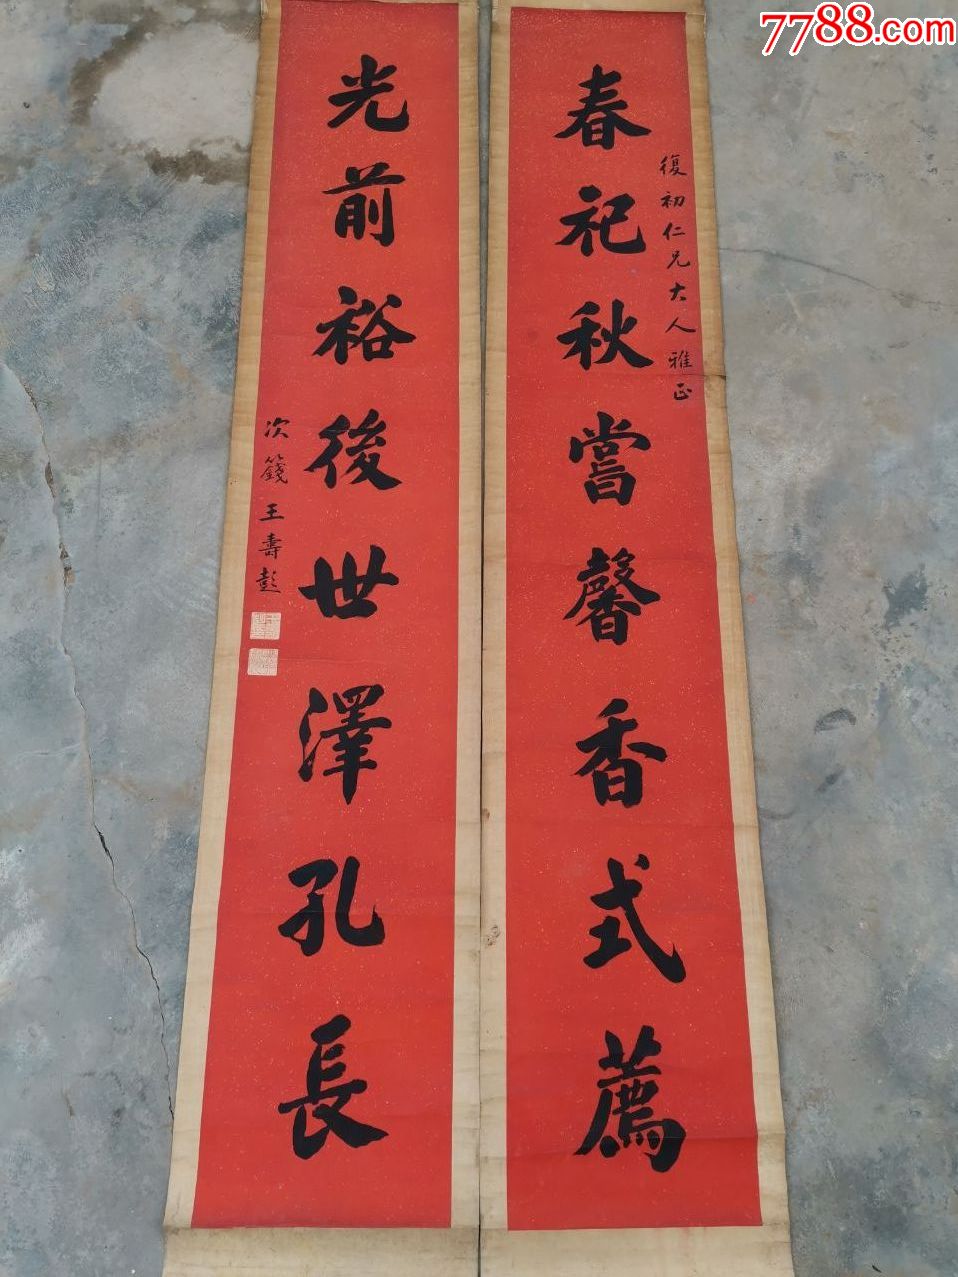 7788.com
春祀秋嘗馨香式薦
復初仁兄大人雅正
光前裕後世澤孔長
次籛王壽彭